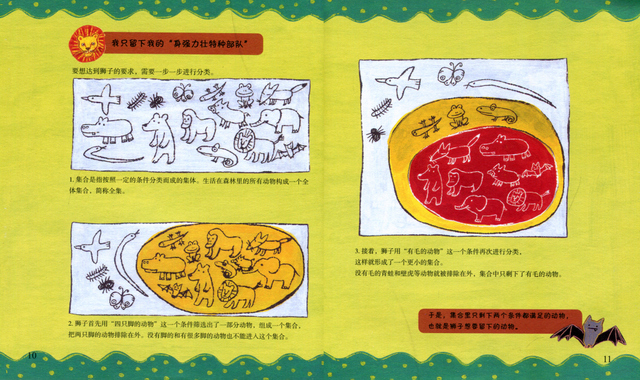 我只留下我的“身强力壮特种部队”
要想达到狮子的要求，需要一步一步进行分类。
1. 集合是指按照一定的条件分类而成的集体。生活在森林里的所有动物构成一个全
体集合，简称全集。
2. 狮子首先用“四只脚的动物”这一个条件筛选出了一部分动物，组成一个集合。
把两只脚的动物排除在外。没有脚的和有很多脚的动物也不能进入这个集合。
10
3. 接着，狮子用“有毛的动物”这一个条件再次进行分类，
这样就形成了一个更小的集合。
没有毛的青蛙和壁虎等动物就被排除在外，集合中只剩下了有毛的动物。
于是，集合里只剩下两个条件都满足的动物，
也就是狮子想要留下的动物。
11